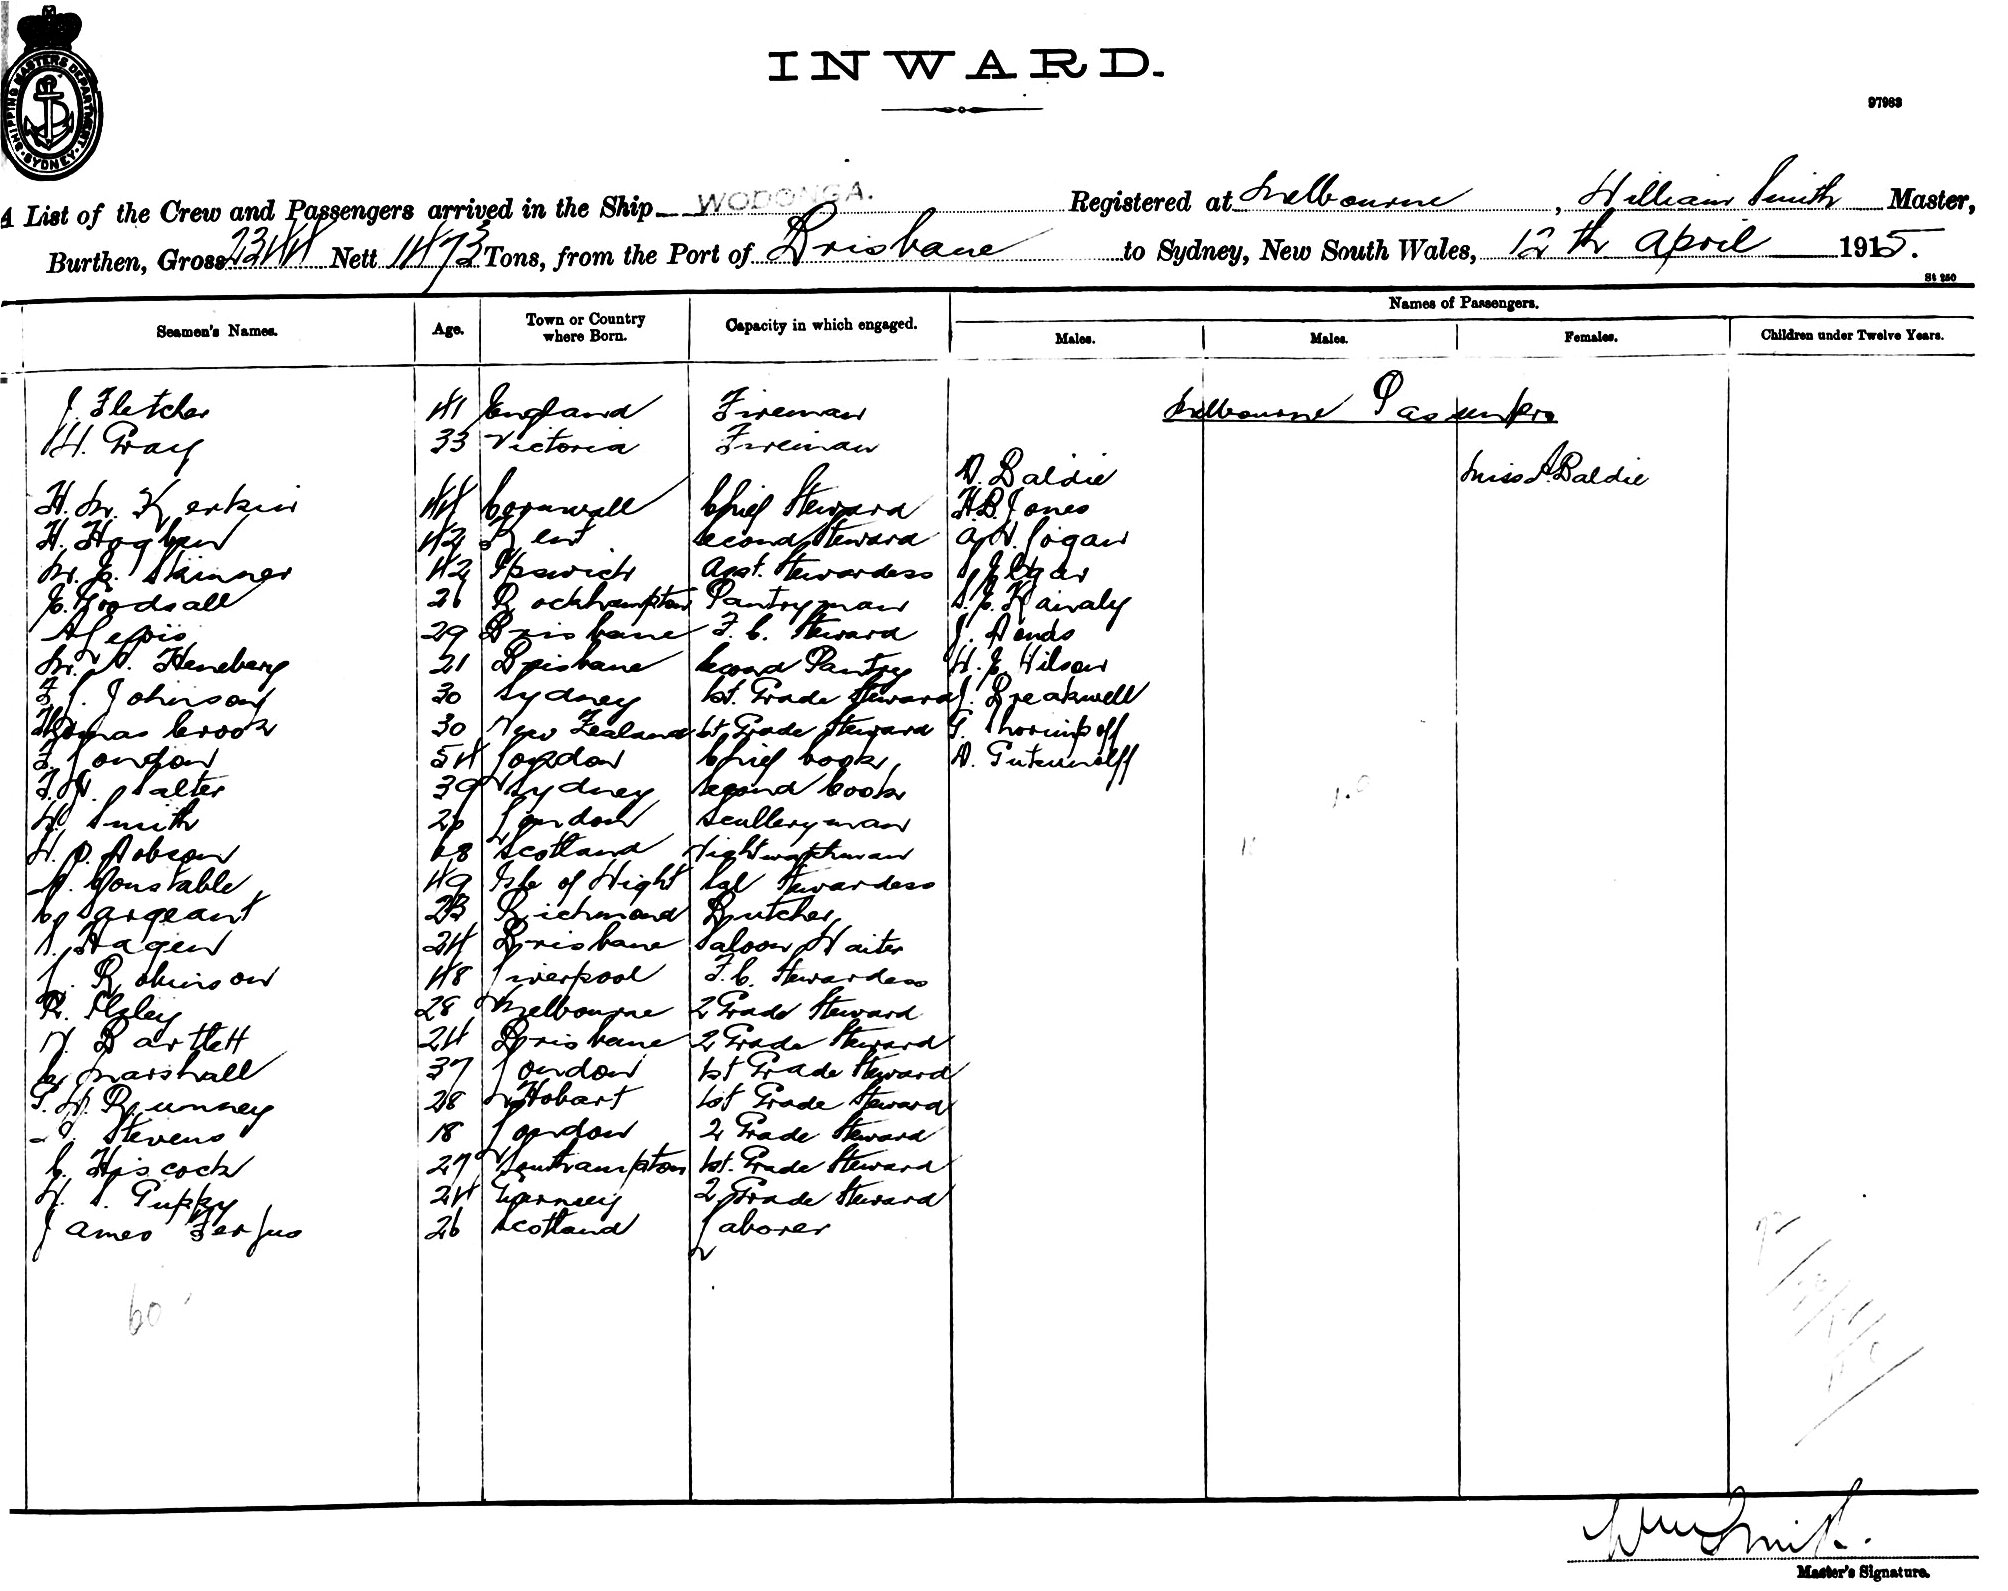 SHIPPING MASTERS DEPARTMENT. SYDNEY.
INWARD.
97983
A List of the Crew and Passengers arrived in the Ship WODONGA. Registered at Melbourne, William Smith Master,
Burthen, Gross 2344 Nett 1473 Tons, from the Port of Brisbane to Sydney, New South Wales, 12th April 1915.
St 250
Seamen's Names. Age. Town or Country where Born. Capacity in which engaged. Names of Passengers.
Males. Males. Females. Children under Twelve Years.
J. Fletcher 41 England Fireman Melbourne Passengers
W. Gray 33 Victoria Fireman
D. Baldie Miss A. Baldie
H. M. Kerkin 44 Cornwall Chief Steward H.B. Jones
H. Hogben 42 Kent Second Steward A. W. Logan
M. E. Skinner 42 Ipswich Asst. Stewardess
E. Goodsall 26 Rockhampton Pantryman
29 Brisbane F. C. Steward J.
M. A. Heneberg 21 Brisbane Second Pantry W. E. Wilson
F. J. Johnson 30 Sydney 1st. Grade Steward J. Breakwell
Thomas Crook 30 New Zealand 1st Grade Steward G.
F. London 54 London Chief Cook D.
F. W. Salter 39 Sydney Second Cook
W. Smith 26 London Sculleryman
W. D. Dobson 68 Scotland Nightwatchman
A. Constable 49 Isle of Wight Sal Stewardess
C. Sargeant 23 Richmond Butcher
S. Hagen 24 Brisbane Saloon Waiter
L. Robinson 48 Liverpool F. C. Stewardess
R. Ilsley 28 Melbourne 2 Grade Steward
N. Bartlett 24 Brisbane 2 Grade Steward
C. Marshall 37 London 1st Grade Steward
G. W. Runney 28 Hobart 1st Grade Steward
Stevens 18 London 2 Grade Steward
C. Hiscock 27 Southampton 1st. Grade Steward
W. S. Guppy 24 Gurnsey 2 Grade Steward
James Fergus 26 Scotland Laborer
60
Wm Smith.
Master's Signature.